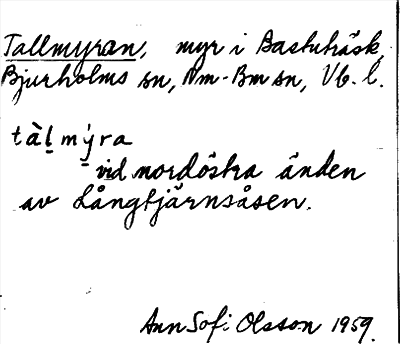 Tallmyran, myr i Bastuträsk,
Bjurholms sn, Nm-Bm sn, Vb. l.
tàl̲mý̲ra
vid nordöstra änden
av Långtjärnsåsen.
Ann Sofi Olsson 1959.